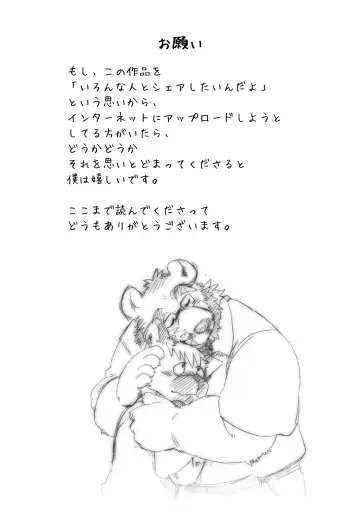 お願い
もし、この作品を
「いろんな人とシェアしたいんだよ」
という思いから、
インターネットにアップロードしようと
してる方がいたら、
どうかどうか
それを思いとどまってくださると
僕は嬉しいです。
ここまで読んでくださって
どうもありがとうございます。